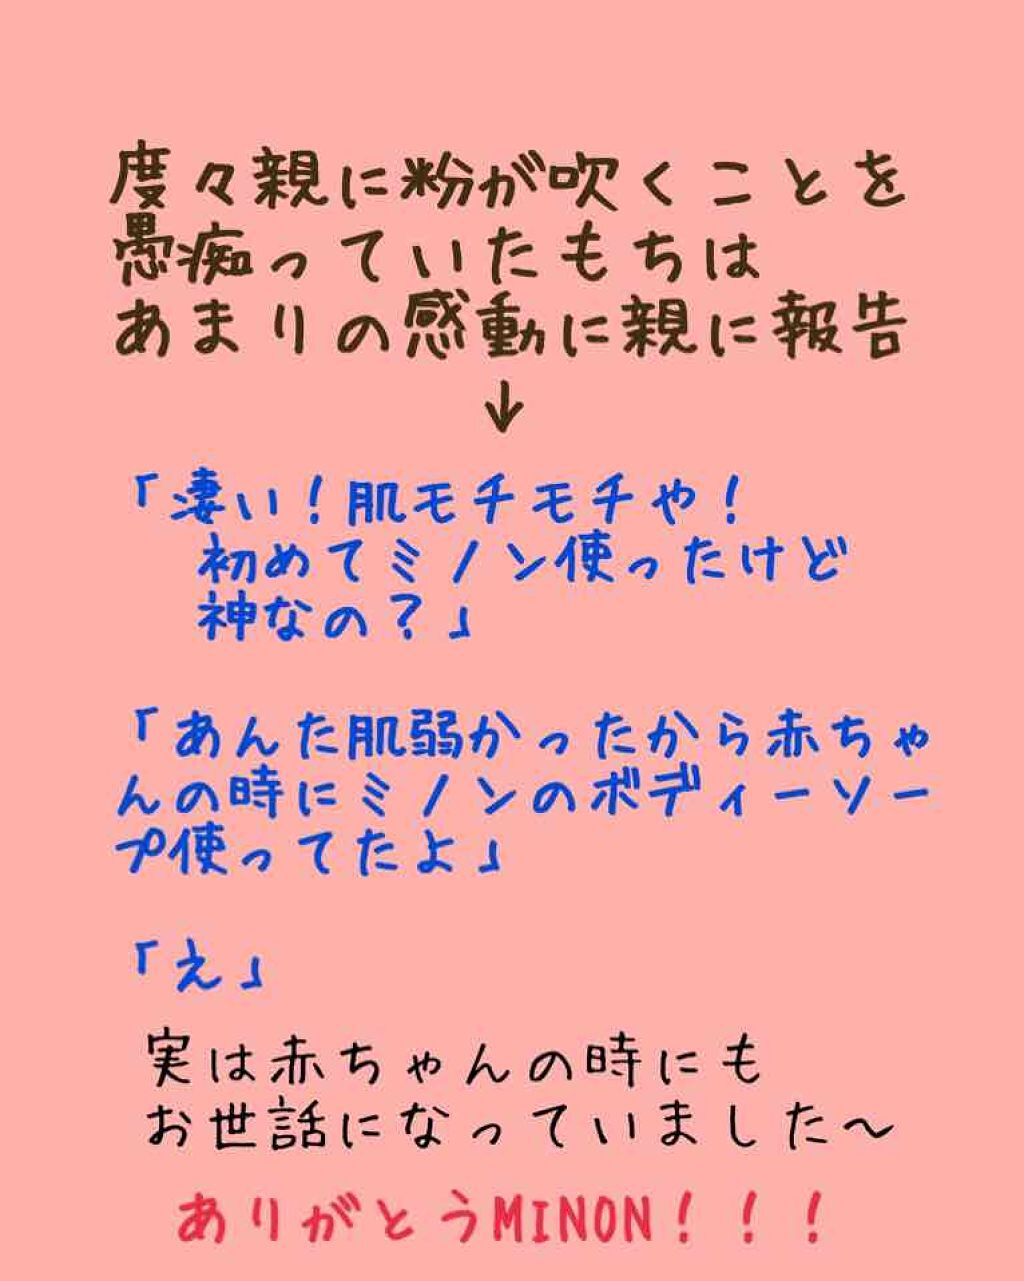 度々親に粉が吹くことを
愚痴っていたもちは
あまりの感動に親に報告
↓
「凄い！肌モチモチや！
初めてミノン使ったけど
神なの？」
「あんた肌弱かったから赤ちゃ
んの時にミノンのボディーソー
プ使ってたよ」
「え」
実は赤ちゃんの時にも
お世話になっていました〜
ありがとうMINON！！！